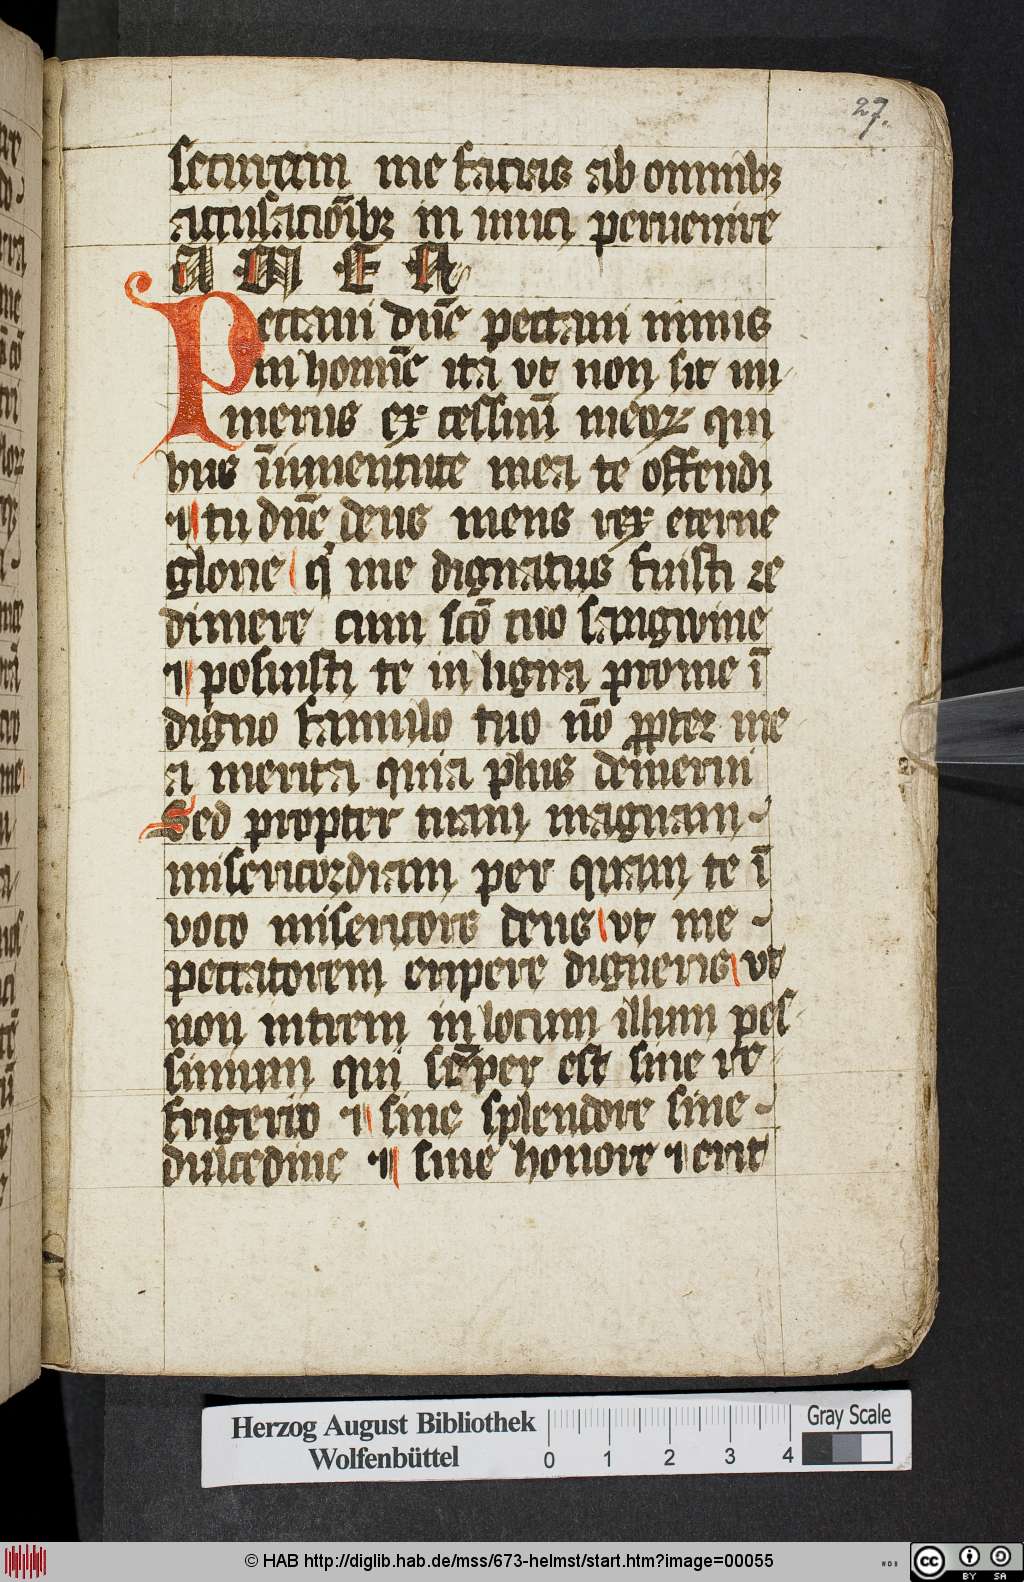 27.
securem me facias ab omnibꝫ
accusacōibꝫ in vnuci peruenire
A M E N
Peccaui dñe peccaui nimis
in homīe ita vt non sit nu
merus ex cessuū meoꝝ qui
bus īiuuentute mea te offendi
⁊ tu dñe deus meus rex eterne
glorie qͥ me dignatus fuisti re
dimere cum scō tuo sangwine
⁊ posuisti te in ligna pro me ī
digno famulo tuo nō ꝓpter me
a merita quia plus demerui
Sed propter tuam magnam
misericordiam per quam te ī
voco misericors deus vt me
peccatorem eripere digneris vt
non intrem in locum illum pes
simum qui sēper est sine re
frigerio ⁊ sine splendore sine
dulcedine ⁊ sine honore ⁊ erit
Herzog August Bibliothek
Wolfenbüttel
0 1 2 3 4
Gray Scale
© HAB http://diglib.hab.de/mss/673-helmst/start.htm?image=00055
WDB
cc BY SA